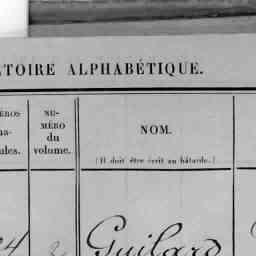 TOIRE ALPHABÉTIQUE.
NU-
MÉRO
du
volume.
NOM.
(Il doit être écrit en bâtarde.)
Guilard